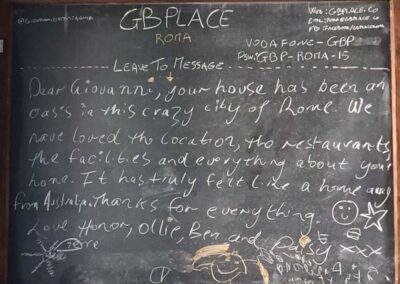 GBPLACE
ROMA
WEB: GBPLACE.CO
VODAFONE-GBP
PSW: GBP-ROMA-15
LEAVE TO MESSAGE
Dear Giovanni, your house has been an
oasis in this crazy city of Rome. We
have loved the location, the restaurants,
the facilities and everything about your
home. It has truly felt like a home away
from Australia. Thanks for everything.
Love Honor, Ollie, Ben and Daisy
xxx